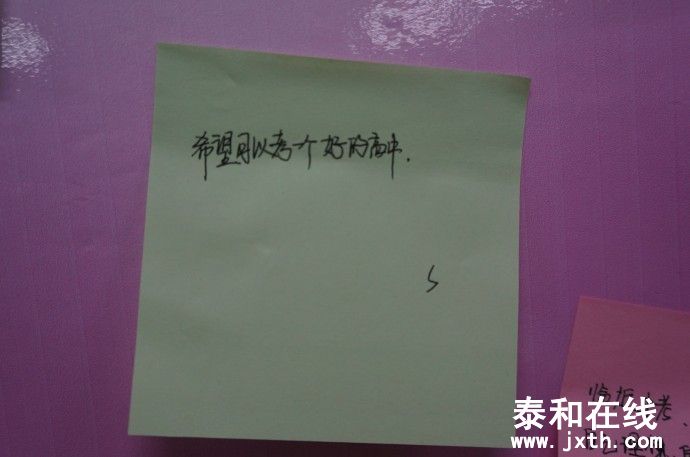 希望可以考个好的高中.
S
泰和在线
www.jxth.com